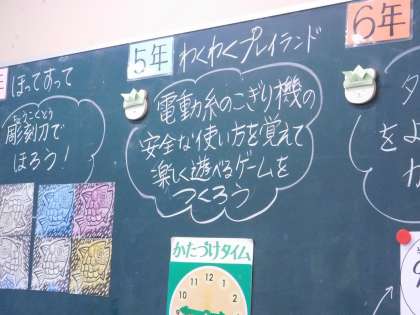 年
ほってすって
ちょうこくとう
彫刻刀で
ほろう!
5年
わくわくプレイランド
電動糸のこぎり機の
安全な使い方を覚えて
楽しく遊べるゲームを
つくろう
かたづけタイム
12
11
1
10
2
9
3
8
6年
タ
をよ